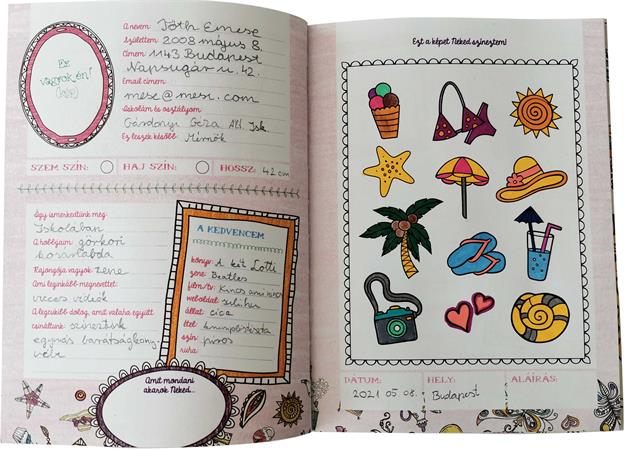 Ez
vagyok én!
A nevem: Tóth Emese
Születtem: 2008 május 8.
Címem: 1143 Budapest
Napsugár u. 42.
Email címem:
mese@mese.com
Iskolám és osztályom:
Gárdonyi Géza Ált. Isk.
Ez leszek később: Mérnök
SZEM SZÍN: HAJ SZÍN: HOSSZ: 42 cm
Így ismerkedtünk meg:
Iskolában
A hobbijaim: görkori
kosárlabda
Rajongója vagyok: zene
Ami leginkább megnevettet:
vicces videók
A legcikibb dolog, amit valaha együtt
csináltunk: színeztünk
egymás barátságkönyv-
A KEDVENCEM
könyv: A két Lotti
zene: Beatles
film/tv: Kincs ami nincs
weboldal:
állat: cica
étel: krumplistészta
szín: piros
ruha:
Amit mondani
akarok Neked...
Ezt a képet Neked színeztem!
DÁTUM: HELY: ALÁÍRÁS:
2021 05 08. Budapest